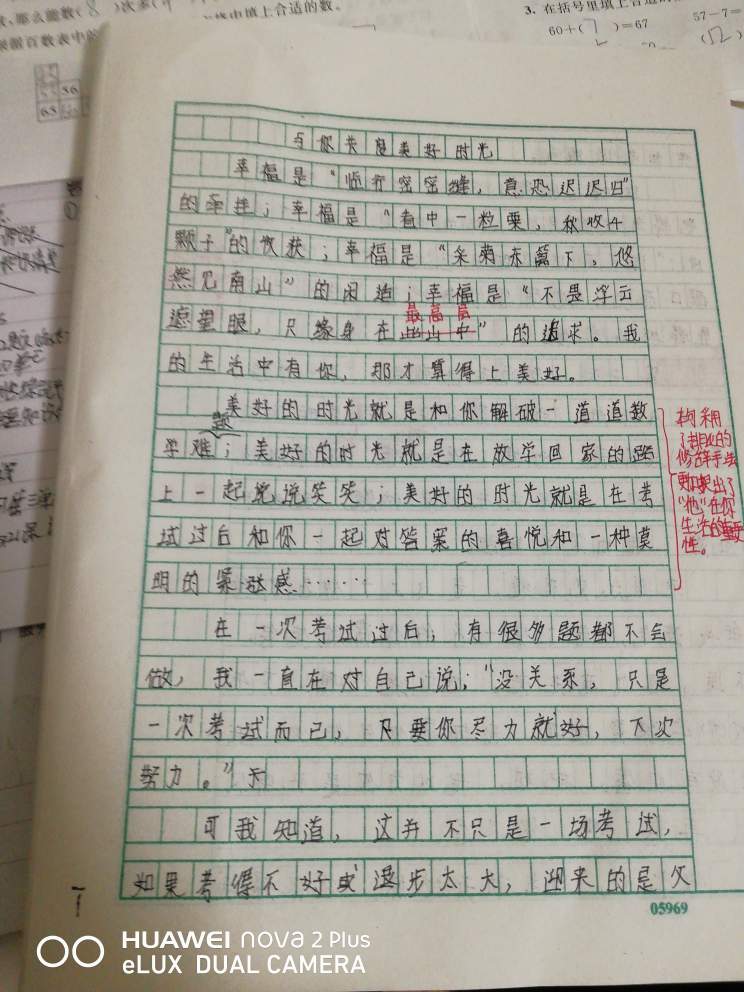 次数(
那么能数( 8 )次
填上合适的数。
根据百数表中的
3. 在括号里填上合适的
60+( 7 )=67
57-7=
(52)
56
65
与你共度美好时光
幸福是“临行密密缝，意恐迟迟归”
的牵挂；幸福是“春中一粒栗，秋收千
颗子”的收获；幸福是“采菊东篱下，悠
然见南山”的闲适；幸福是“不畏浮云
最高层
遮望眼，只缘身在此山中”的追求。我
的生活中有你，那才算得上美好。
美好的时光就是和你解破一道道数
题
学难；美好的时光就是在放学回家的路
上一起说说笑笑；美好的时光就是在考
试过后和你一起对答案的喜悦和一种莫
明的紧张感……
本句采用
了排比的
修辞手法
更加突出了
“他”在你
生活的重要
性。
在一次考试过后，有很多题都不会
做，我一直在对自己说：“没关系，只是
一次考试而已，只要你尽力就好，下次
努力。”
可我知道，这并不只是一场考试，
如果考得不好或退步太大，迎来的是父
05969
HUAWEI nova 2 Plus
eLUX DUAL CAMERA